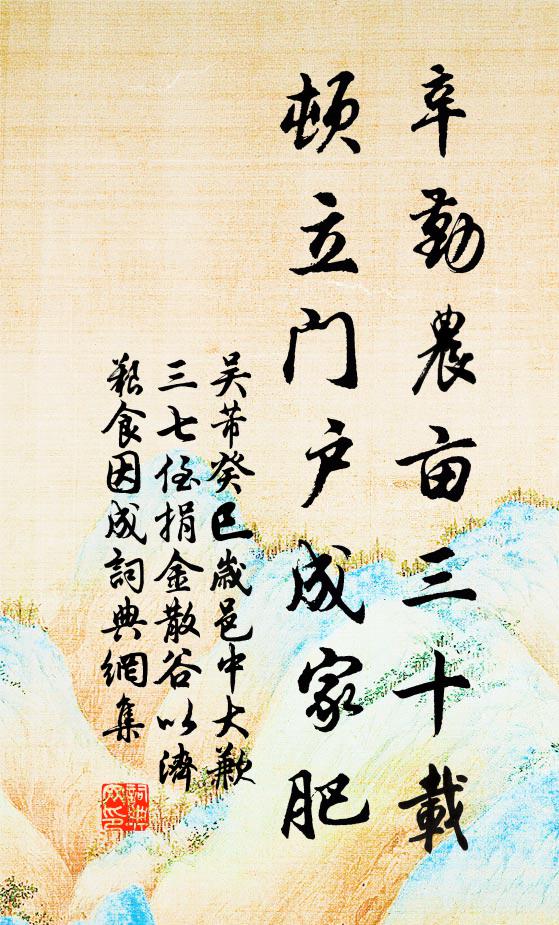 辛勤農亩三十載
頓立门户成家肥
吴芾癸巳嵗邑中大歉
三七侄捐金散谷以濟
艱食因成詞典網集